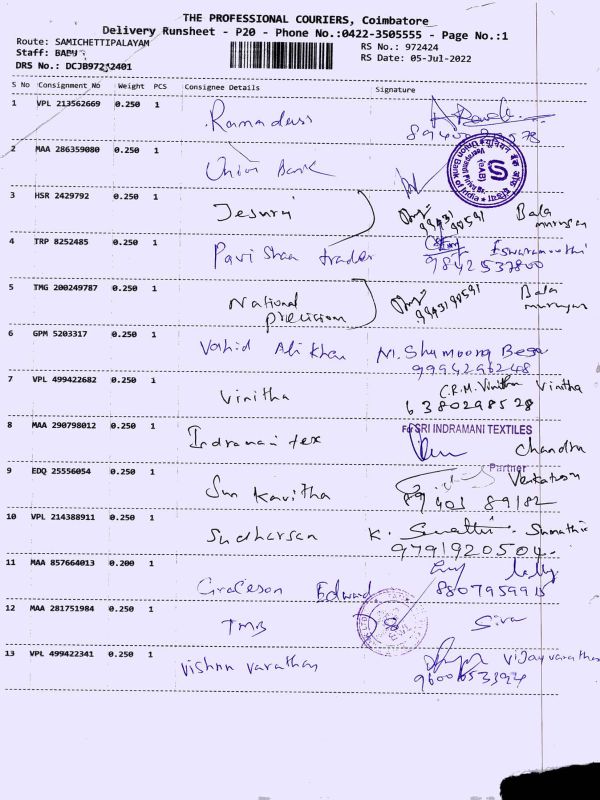 THE PROFESSIONAL COURIERS, Coimbatore
Delivery Runsheet - P20 - Phone No.:0422-3505555 - Page No.:1
Route: SAMICHETTIPALAYAM
RS No.: 972424
Staff: BABU
RS Date: 05-Jul-2022
DRS No.: DCJB97242401
S No Consignment No Weight PCS Consignee Details Signature
1 VPL 213562669 0.250 1 Ramadass
2 MAA 286359080 0.250 1 Union Bank
Union Bank of India
3 HSR 2429792 0.250 1 Jesuraj Bala
99431 90591 murugan
4 TRP 8252485 0.250 1 Pavishaa trader Eswaramoorthi
9842537800
5 TMG 200249787 0.250 1 National Bala
precision 99431 90591 murugan
6 GPM 5203317 0.250 1 Vahid Ali Khan M. Shamoona Begam
9994296248
7 VPL 499422682 0.250 1 Vinitha C.R.M. Vinitha Vinitha
6380298528
8 MAA 290798012 0.250 1 Indramani tex For SRI INDRAMANI TEXTILES
Chandra
Partner
9 EDQ 25556054 0.250 1 Sun Kavitha Venkatesan
89403 89182
10 VPL 214388911 0.250 1 Sudharsan K. Swathi Sumathi
9791920504
11 MAA 857664013 0.200 1 Graceson Edward
8807959915
12 MAA 281751984 0.250 1 TMB Siva
13 VPL 499422341 0.250 1 Vishnu varathan Vijayvarathan